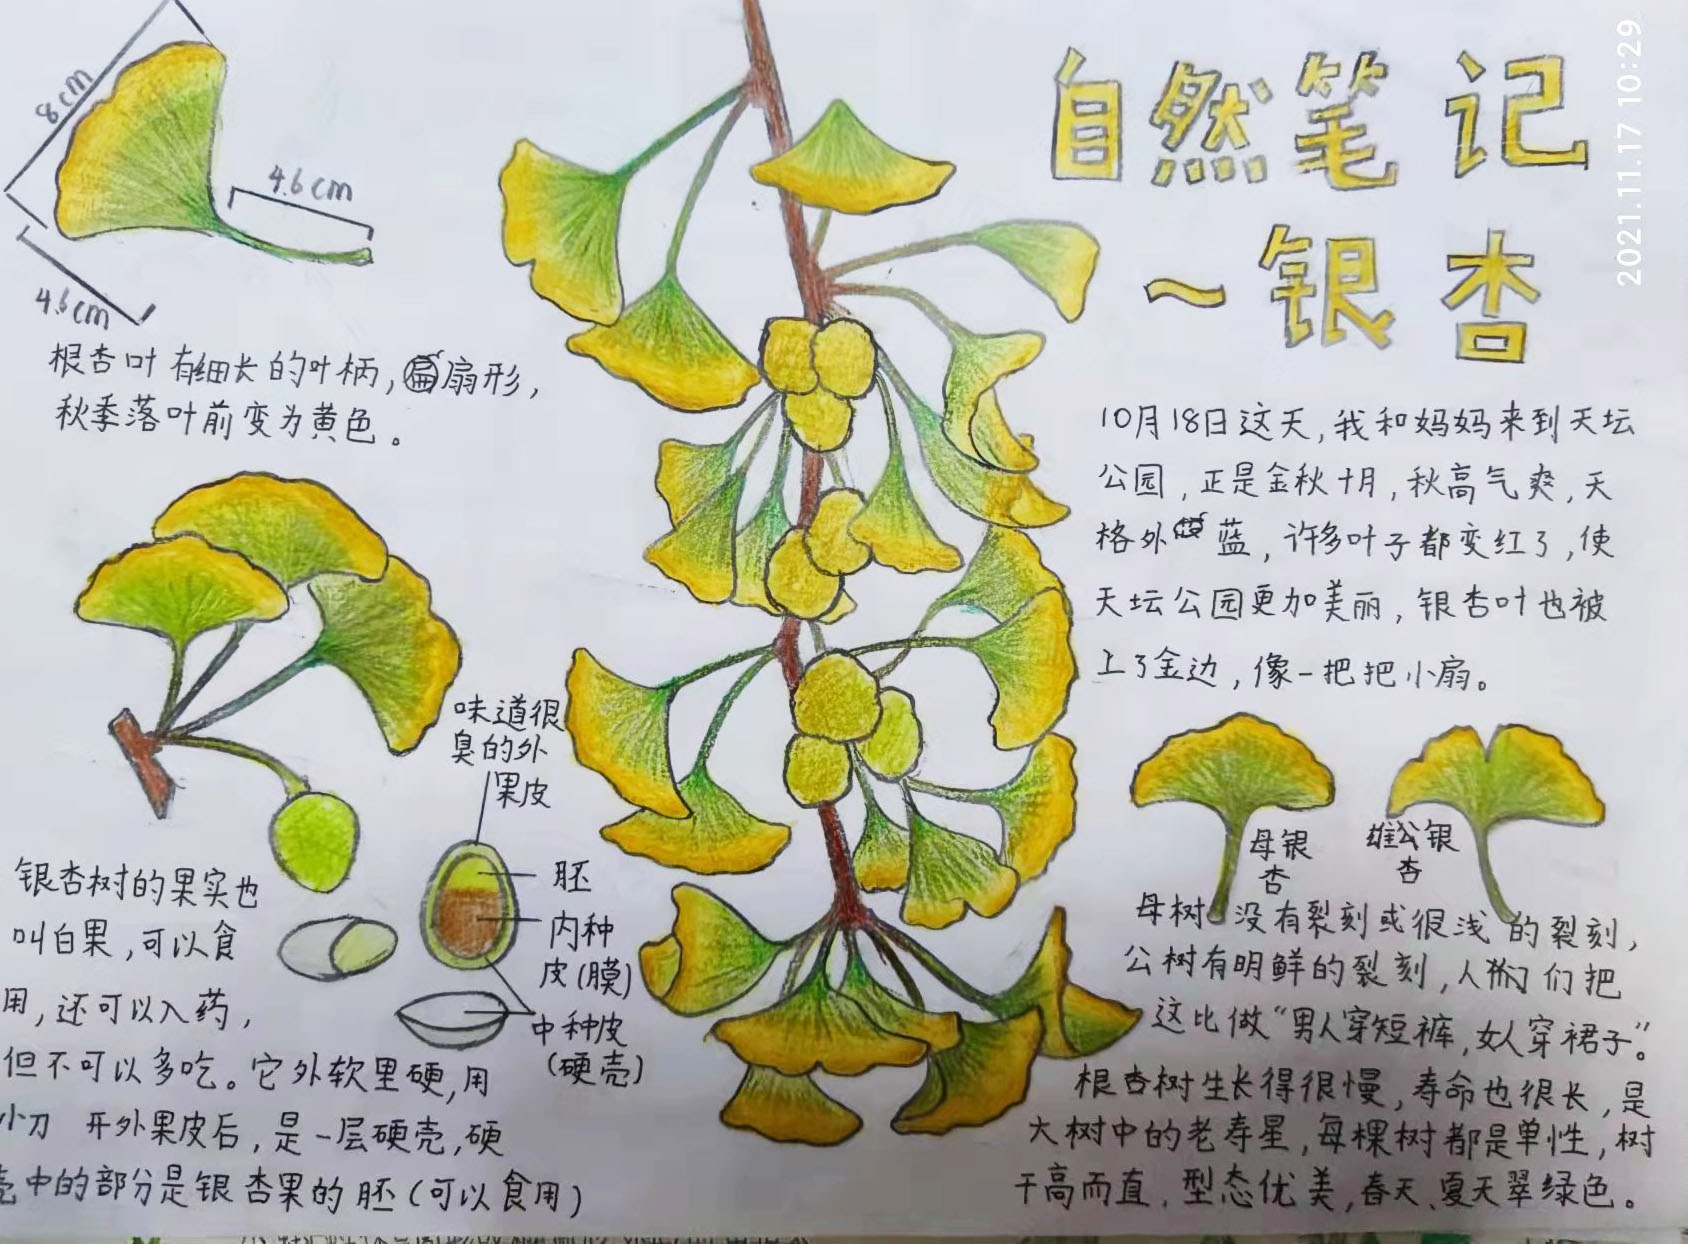 自然笔记
~银杏
2021.11.17 10:29
8cm
4.6cm
4.6cm
根杏叶有细长的叶柄,扇形,
秋季落叶前变为黄色。
10月18日这天,我和妈妈来到天坛
公园,正是金秋十月,秋高气爽,天
格外蓝,许多叶子都变红了,使
天坛公园更加美丽,银杏叶也被
上了金边,像一把把小扇。
味道很
臭的外
果皮
胚
内种
皮(膜)
中种皮
(硬壳)
银杏树的果实也
叫白果,可以食
用,还可以入药,
但不可以多吃。它外软里硬,用
小刀 开外果皮后,是一层硬壳,硬
壳中的部分是银杏果的胚(可以食用)
母银
杏
雄公银
杏
母树 没有裂刻或很浅的裂刻,
公树有明鲜的裂刻,人们把
这比做“男人穿短裤,女人穿裙子”。
根杏树生长得很慢,寿命也很长,是
大树中的老寿星,每棵树都是单性,树
干高而直,型态优美,春天、夏天翠绿色。